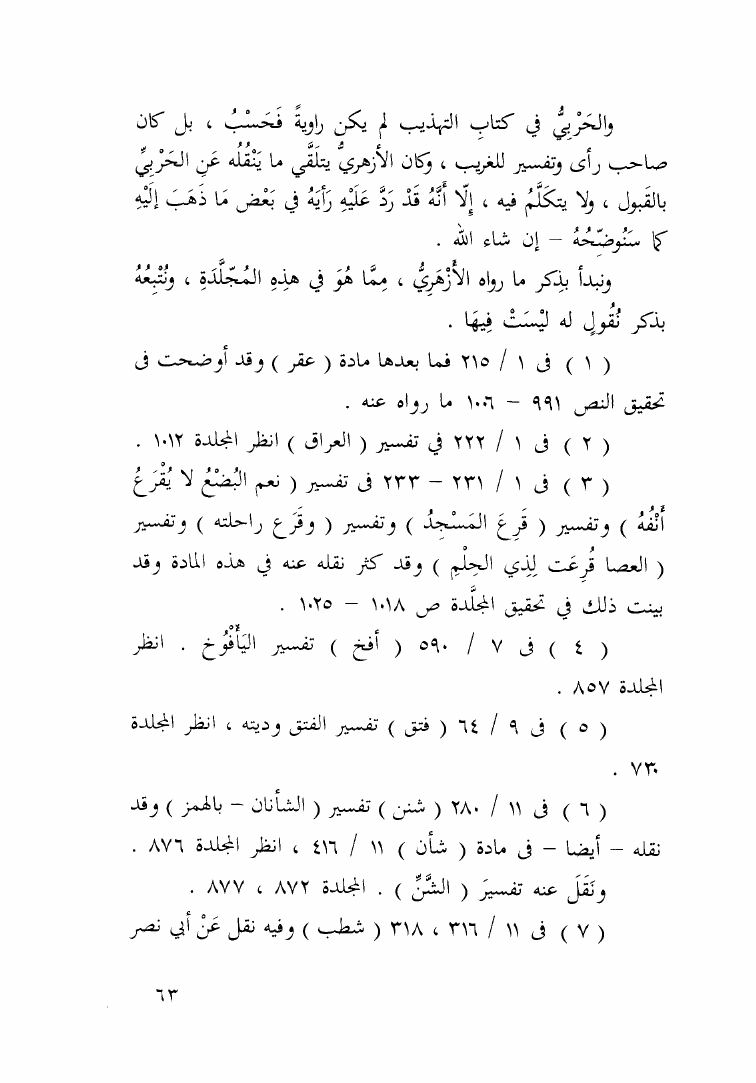 والحَرْبِيُّ في كتابِ التهذيب لم يكن راويةً فَحَسْبُ ، بل كان
صاحب رأى وتفسير للغريب ، وكان الأزهريُّ يتلَقَّي ما يَنْقُلُه عَنِ الحَرْبِيِّ
بالقَبول ، ولا يتكَلَّمُ فيه ، إلّا أَنَّهُ قَدْ رَدَّ عَلَيْهِ رَأيَهُ في بَعْض مَا ذَهَبَ إلَيْهِ
كما سَنُوضّحُهُ – إن شاء الله .
ونبدأ بذِكر ما رواه الأَزْهَرِيُّ ، مِمَّا هُوَ في هذِهِ المُجَلَّدَةِ ، ونُتْبِعُهُ
بذكر نُقُولٍ له ليْسَتْ فِيهَا .
( ١ ) فى ١ / ٢١٥ فما بعدها مادة ( عقر ) وقد أوضحت فى
تحقيق النص ٩٩١ – ١٠٠٦ ما رواه عنه .
( ٢ ) فى ١ / ٢٢٢ في تفسير ( العراق ) انظر المجلدة ١٠١٢ .
( ٣ ) فى ١ / ٢٣١ – ٢٣٣ فى تفسير ( نعم البُضْعُ لا يُقْرَعُ
أَنْفُهُ ) وتفسير ( قَرِعَ المَسْجِدُ ) وتفسير ( وقَرَع راحلته ) وتفسير
( العصا قُرِعَت لِذِي الحِلْمِ ) وقد كثر نقله عنه في هذه المادة وقد
بينت ذلك في تحقيق المجلَّدة ص ١٠١٨ – ١٠٢٥ .
( ٤ ) فى ٧ / ٥٩٠ ( أفخ ) تفسير اليَأْفُوُخ . انظر
المجلدة ٨٥٧ .
( ٥ ) فى ٩ / ٦٤ ( فتق ) تفسير الفتق وديته ، انظر المجلدة
٧٣٠ .
( ٦ ) فى ١١ / ٢٨٠ ( شنن ) تفسير ( الشأنان – بالهمز ) وقد
نقله – أيضا – فى مادة ( شأن ) ١١ / ٤١٦ ، انظر المجلدة ٨٧٦ .
ونَقَلَ عنه تفسيرَ ( الشَّنِّ ) . المجلدة ٨٧٢ ، ٨٧٧ .
( ٧ ) فى ١١ / ٣١٦ ، ٣١٨ ( شطب ) وفيه نقل عَنْ أبي نصر
٦٣